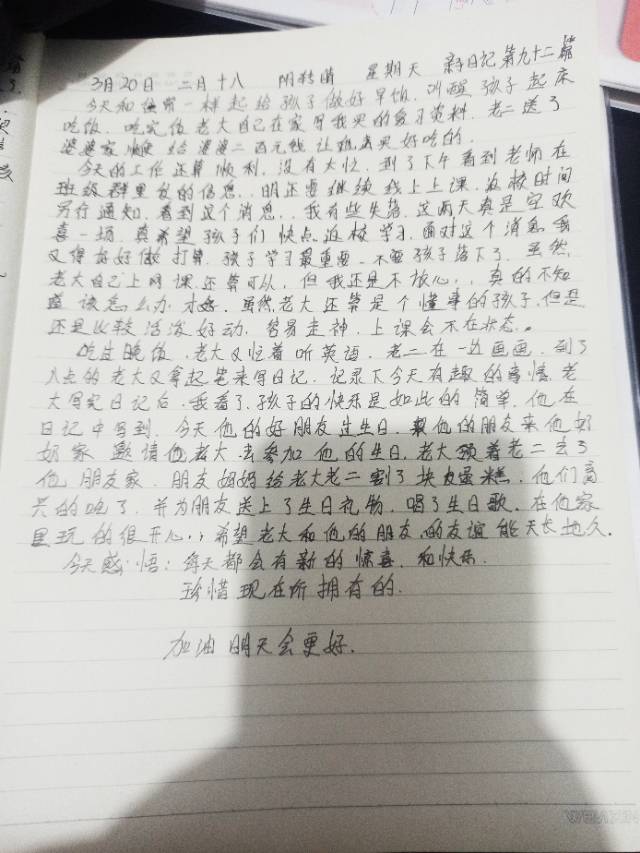 3月20日 二月十八 阴转晴 星期天 亲子日记第九十二篇
今天和往常一样起给孩子做好早饭,叫醒孩子起床
吃饭.吃完饭老大自己在家写我买的复习资料.老二送了
婆婆家.顺便给婆婆二百元钱让她去买好吃的.
今天的工作还算顺利,没有太忙,到了下午看到老师在
班级群里发的信息,明还要继续线上上课.返校时间
另行通知.看到这个消息,我有些失落.这两天真是空欢
喜一场.真希望孩子们快点返校学习.面对这个消息我
又得好好做打算.孩子学习最重要.不要孩子落下了.虽然
老大自己上网课还算可以,但我还是不放心,真的不知
道该怎么办才好.虽然老大还算是个懂事的孩子,但是
还是比较活泼好动.容易走神.上课会不在状态。
吃过晚饭,老大又忙着听英语.老二在一边画画.到了
八点的老大又拿起笔来写日记.记录下今天有趣的事情.老
大写完日记后,我看了,孩子的快乐是如此的简单.他在
日记中写到,今天他的好朋友过生日.他的朋友来他奶
奶家邀请他老大去参加他的生日.老大领着老二去了
他朋友家.朋友妈妈给老大老二割了块蛋糕,他们高
兴的吃了.并为朋友送上了生日礼物,唱了生日歌.在他家
里玩的很开心,希望老大和他的朋友的友谊能天长地久.
今天感悟:每天都会有新的惊喜.和快乐.
珍惜现在所拥有的.
加油明天会更好.